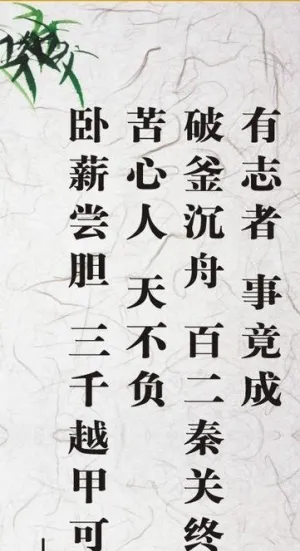 有志者 事竟成
破釜沉舟 百二秦关终
苦心人 天不负
卧薪尝胆 三千越甲可